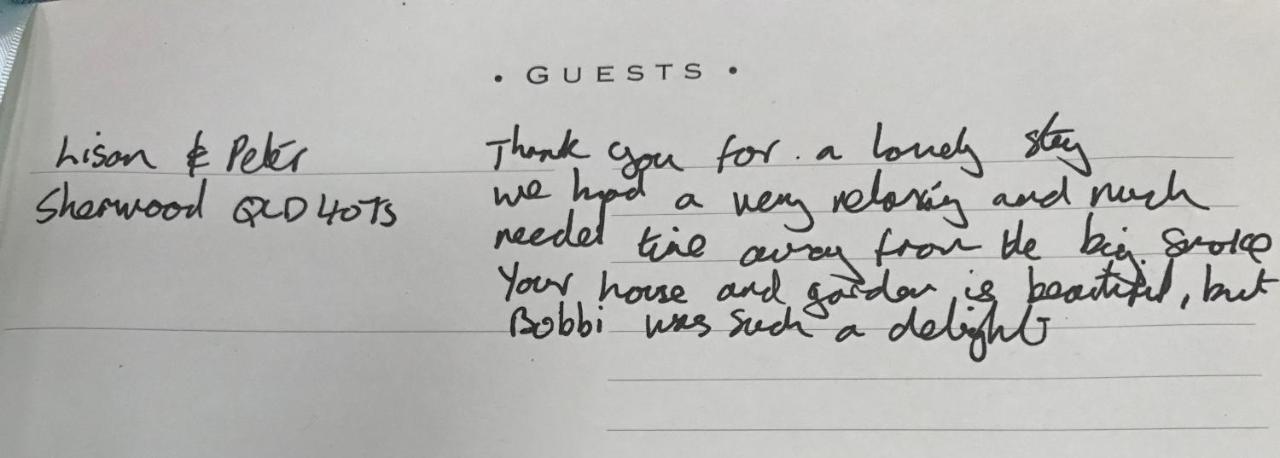 • GUESTS •
Lison & Peter
Sherwood QLD 4075
Thank you for a lovely stay
we had a very relaxing and much
needed time away from the big smoke
Your house and garden is beautiful, but
Bobbi was such a delight